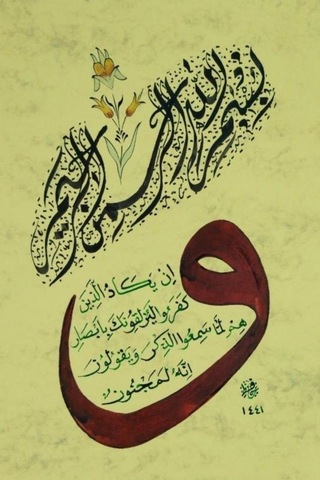 بسم الله الرحمن الرحيم
و
إن يكاد الذين
كفروا ليزلقونك بأبصار
هم لما سمعوا الذكر ويقولون
إنه لمجنون
١٤٤١